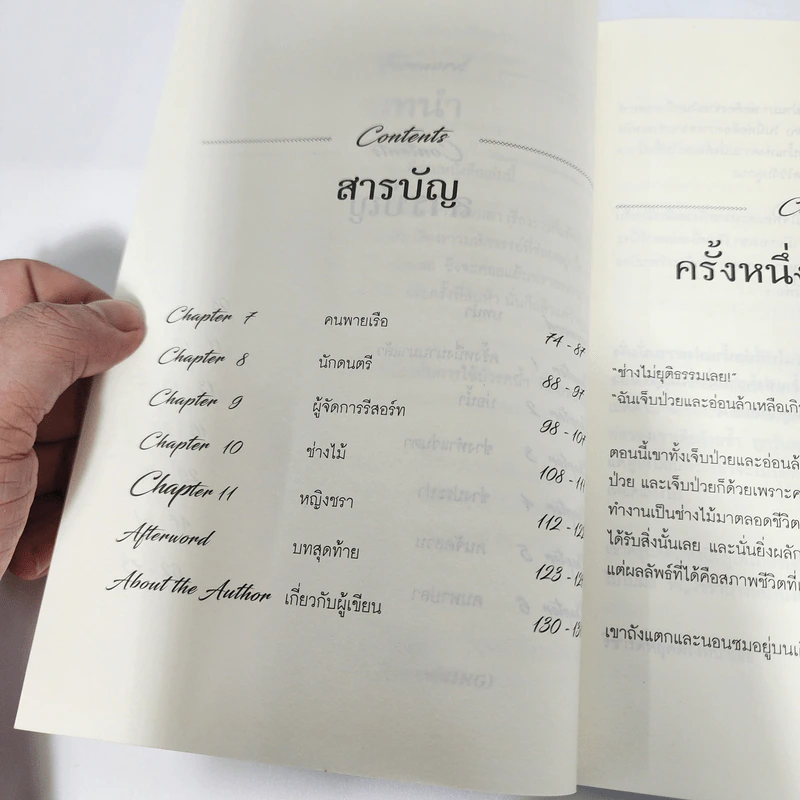 Contents
สารบัญ
Chapter 7 คนพายเรือ 74 - 87
Chapter 8 นักดนตรี 88 - 97
Chapter 9 ผู้จัดการรีสอร์ท 98 - 107
Chapter 10 ช่างไม้ 108 -
Chapter 11 หญิงชรา 112 -
Afterword บทสุดท้าย 123 -
About the Author เกี่ยวกับผู้เขียน 130 -
ครั้งหนึ่ง
"ช่างไม่ยุติธรรมเลย!"
"ฉันเจ็บป่วยและอ่อนล้าเหลือเกิน
ตอนนี้เขาทั้งเจ็บป่วยและอ่อนล้า
ป่วย และเจ็บป่วยก็ด้วยเพราะ
ทำงานเป็นช่างไม้มาตลอดชีวิต
ได้รับสิ่งนั้นเลย และนั่นยิ่งผลัก
แต่ผลลัพธ์ที่ได้คือสภาพชีวิตที่
เขาถังแตกและนอนซมอยู่บน